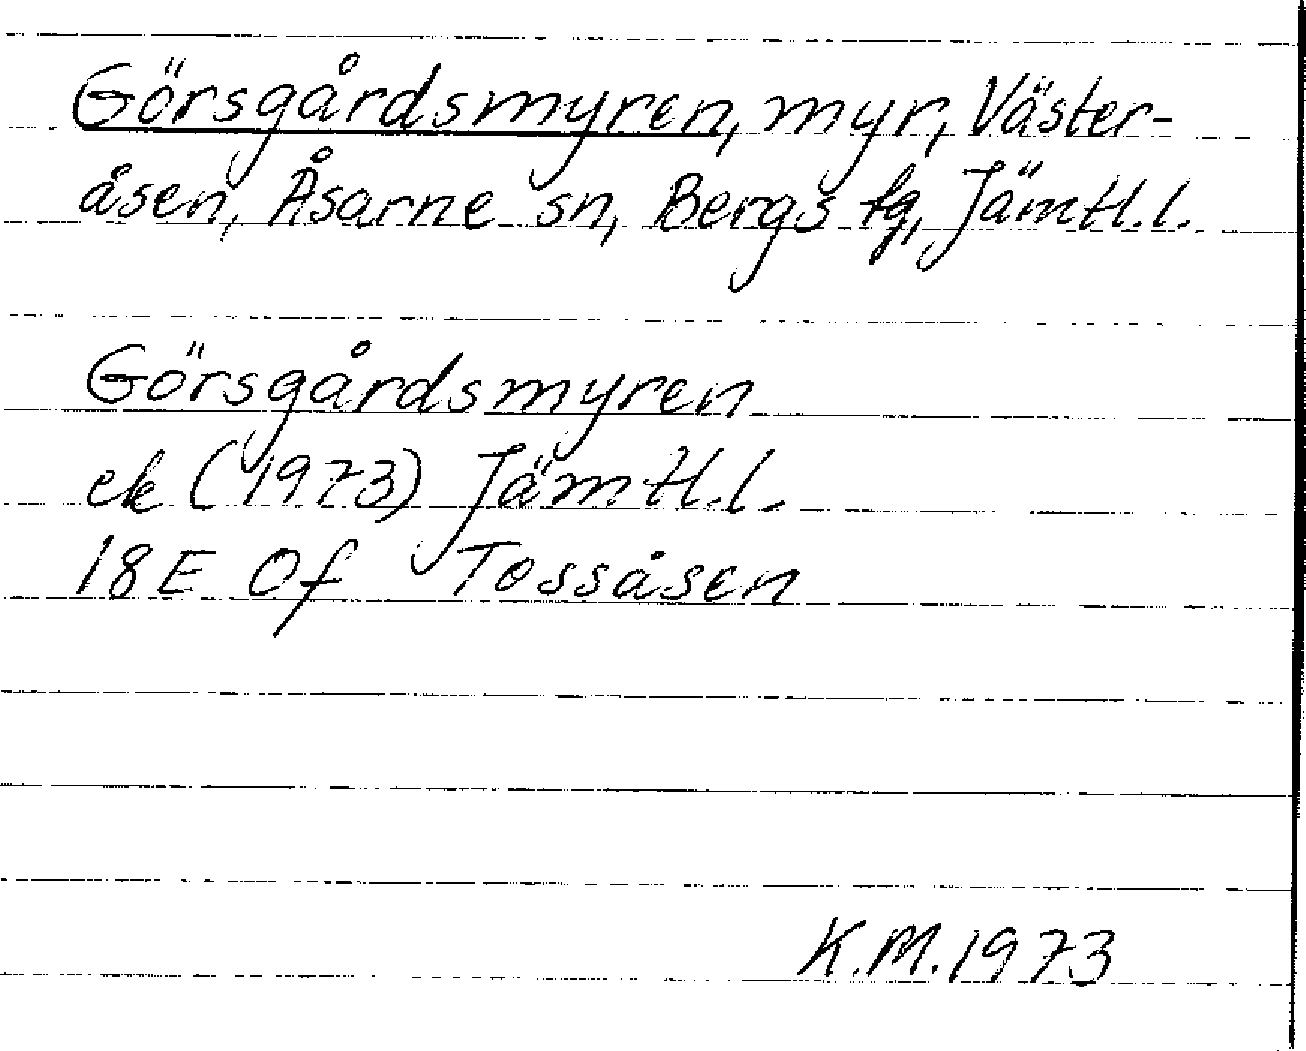 Görsgårdsmyren, myr, Väster-
åsen, Åsarne sn, Bergs tg, Jämtl.l.
Görsgårdsmyren
ek (1973) Jämtl.l.
18E 0f Tossåsen
K.M.1973